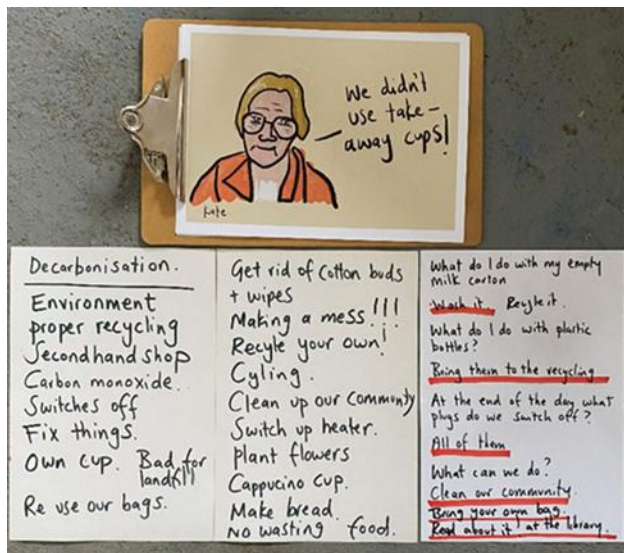 We didn't
use take-
away cups!
Kate
Decarbonisation.
Environment
proper recycling
Secondhand shop
Carbon monoxide.
Switches off
Fix things.
Own cup. Bad for
landfill
Re use our bags.
Get rid of cotton buds
+ wipes
Making a mess!!!
Recyle your own!
Cyling.
Clean up our community
Switch up heater.
plant flowers
Cappucino cup.
Make bread.
No wasting food.
What do I do with my empty
milk carton
Wash it. Recyle it.
What do I do with plastic
bottles?
Bring them to the recycling
At the end of the day what
plugs do we switch off?
All of them
What can we do?
Clean our community.
Bring your own bag.
Read about it, at the library.